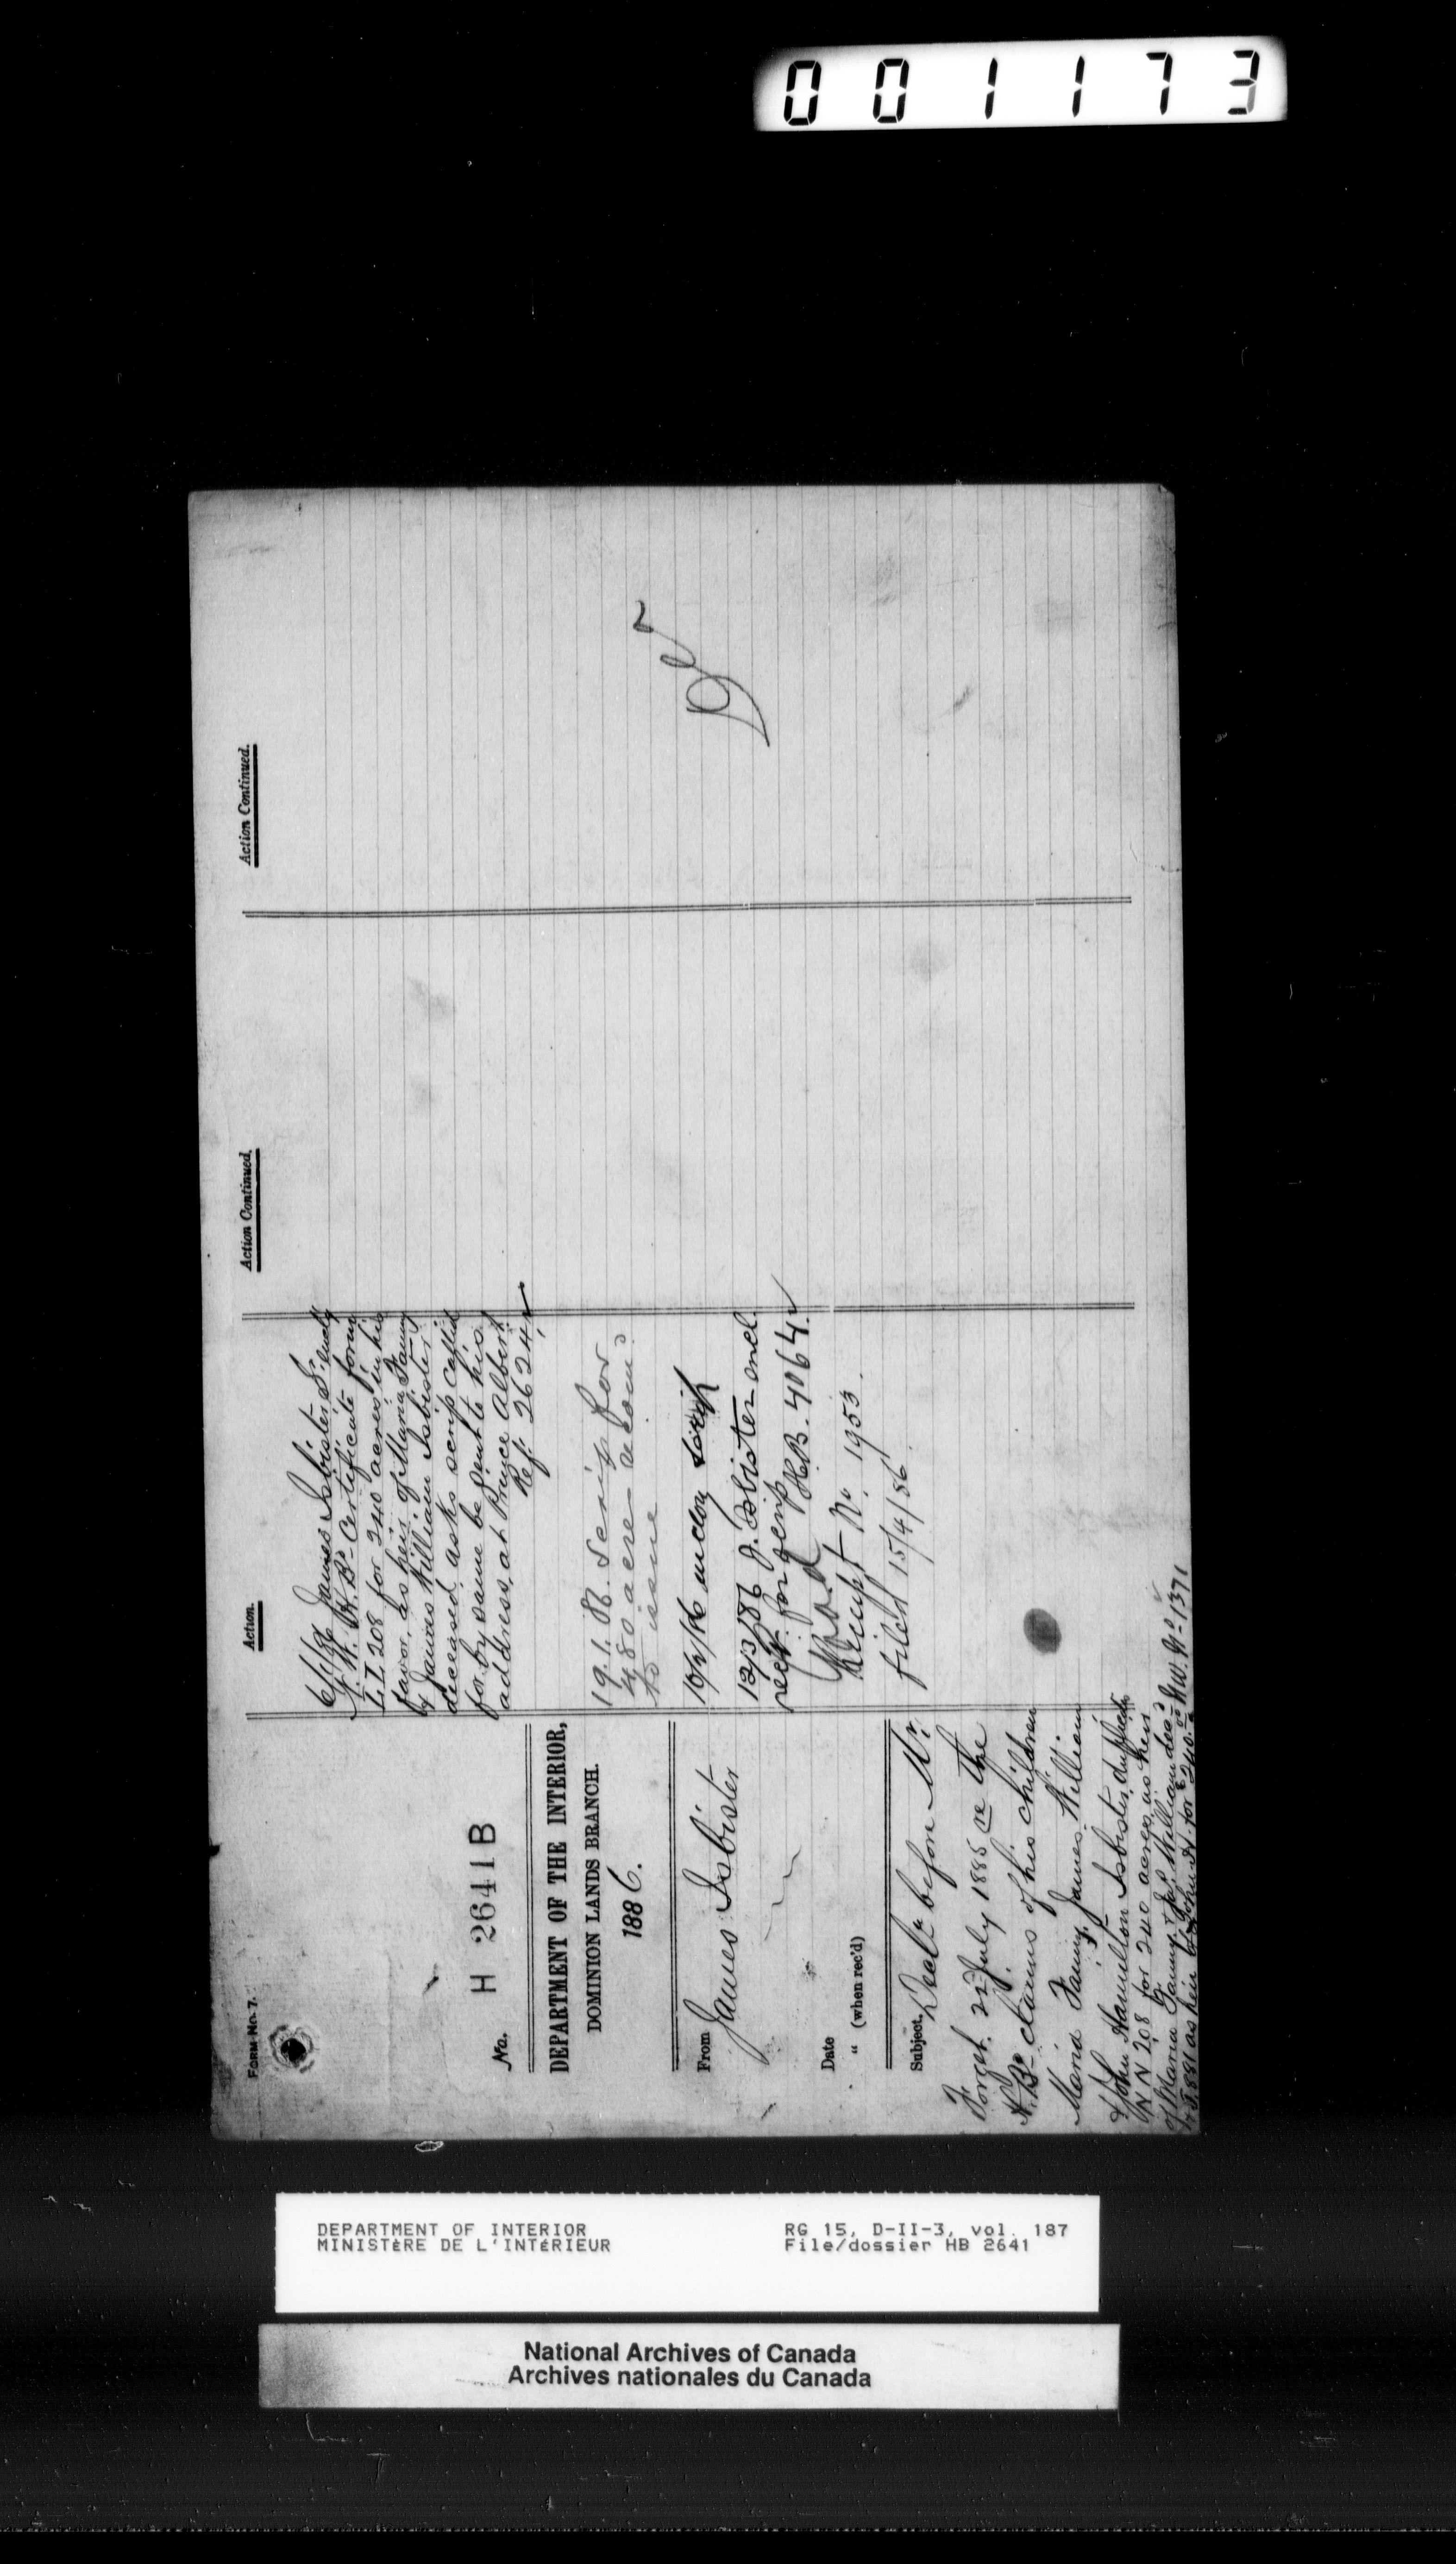 001173
FORM No. 7.
No. H 2641 B
DEPARTMENT OF THE INTERIOR,
DOMINION LANDS BRANCH.
1886.
From James Isbister
Date
" (when rec'd)
Subject, Decl. before Mr.
Forget 22 July 1885 re the
H.B. claims of his children
Maria Fanny, James William
& John Hamilton Isbister, duplicate
N N 208 for 240 acres as heir
of Maria Fanny & Jas William dec'd
881 as heir to John H. for 240 N.W. No 1371
Action.
6/1/86 James Isbister
H. B. Certificate form
L. I. 208 for 240 acres in his
favor, as heir of Maria Fanny
& James William Isbister
deceased, asks scrip called
for by same be sent to his
address, at Prince Albert
Ref: 2624
19.1.86. Scrip for
480 acre
to issue
12/3/86 J. Isbister encl.
rect. for scrip
H.B. 4064.
Receipt No. 1953.
filed 15/4/86
Action Continued.
Action Continued.
DEPARTMENT OF INTERIOR
MINISTÈRE DE L'INTÉRIEUR
RG 15, D-II-3, vol. 187
File/dossier HB 2641
National Archives of Canada
Archives nationales du Canada